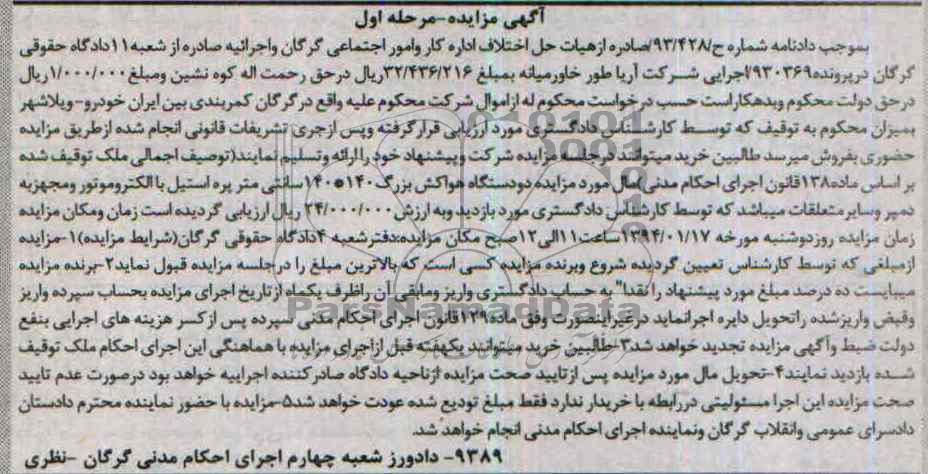 آگهی مزایده-مرحله اول
بموجب دادنامه شماره ح/۹۳/۴۲۸/صادره ازهیات حل اختلاف اداره کار وامور اجتماعی گرگان واجرائیه صادره از شعبه۱۱دادگاه حقوقی
گرگان درپرونده۹۳۰۳۶۹/اجرایی شرکت آریا طور خاورمیانه بمبلغ ۳۲/۴۳۶/۲۱۶ریال درحق رحمت اله کوه نشین ومبلغ۱/۰۰۰/۰۰۰ریال
درحق دولت محکوم وبدهکاراست حسب درخواست محکوم له ازاموال شرکت محکوم علیه واقع درگرگان کمربندی بین ایران خودرو-ویلاشهر
بمیزان محکوم به توقیف که توسط کارشناس دادگستری مورد ارزیابی قرارگرفته وپس ازجری تشریفات قانونی انجام شده ازطریق مزایده
حضوری بفروش میرسد طالبین خرید میتوانند درجلسه مزایده شرکت وپیشنهاد خود را ارائه وتسلیم نمایند(توصیف اجمالی ملک توقیف شده
بر اساس ماده۱۳۸قانون اجرای احکام مدنی)مال مورد مزایده دودستگاه هواکش بزرگ ۱۴۰*۱۴۰سانتی متر پره استیل با الکتروموتور ومجهزبه
دمپر وسایرمتعلقات میباشد که توسط کارشناس دادگستری مورد بازدید وبه ارزش ۲۴/۰۰۰/۰۰۰ ریال ارزیابی گردیده است زمان ومکان مزایده
زمان مزایده روزدوشنبه مورخه ۱۳۹۴/۰۱/۱۷ساعت۱۱الی۱۲صبح مکان مزایده:دفترشعبه ۴دادگاه حقوقی گرگان(شرایط مزایده)۱-مزایده
ازمبلغی که توسط کارشناس تعیین گردیده شروع وبرنده مزایده کسی است که بالاترین مبلغ را درجلسه مزایده قبول نماید۲-برنده مزایده
میبایست ده درصد مبلغ مورد پیشنهاد را نقدا" به حساب دادگستری واریز ومابقی آن راظرف یکماه ازتاریخ اجرای مزایده بحساب سپرده واریز
وقبض واریزشده راتحویل دایره اجرانماید درغیراینصورت وفق ماده۱۲۹قانون اجرای احکام مدنی سپرده پس ازکسر هزینه های اجرایی بنفع
دولت ضبط وآگهی مزایده تجدید خواهد شد۳-طالبین خرید میتوانند یکهفته قبل ازاجرای مزایده با هماهنگی این اجرای احکام ملک توقیف
شده بازدید نمایند۴-تحویل مال مورد مزایده پس ازتایید صحت مزایده ازناحیه دادگاه صادرکننده اجراییه خواهد بود درصورت عدم تایید
صحت مزایده این اجرا مسئولیتی دررابطه با خریدار ندارد فقط مبلغ تودیع شده عودت خواهد شد۵-مزایده با حضور نماینده محترم دادستان
دادسرای عمومی وانقلاب گرگان ونماینده اجرای احکام مدنی انجام خواهد شد.
۹۳۸۹- دادورز شعبه چهارم اجرای احکام مدنی گرگان -نظری
ParsNamadData